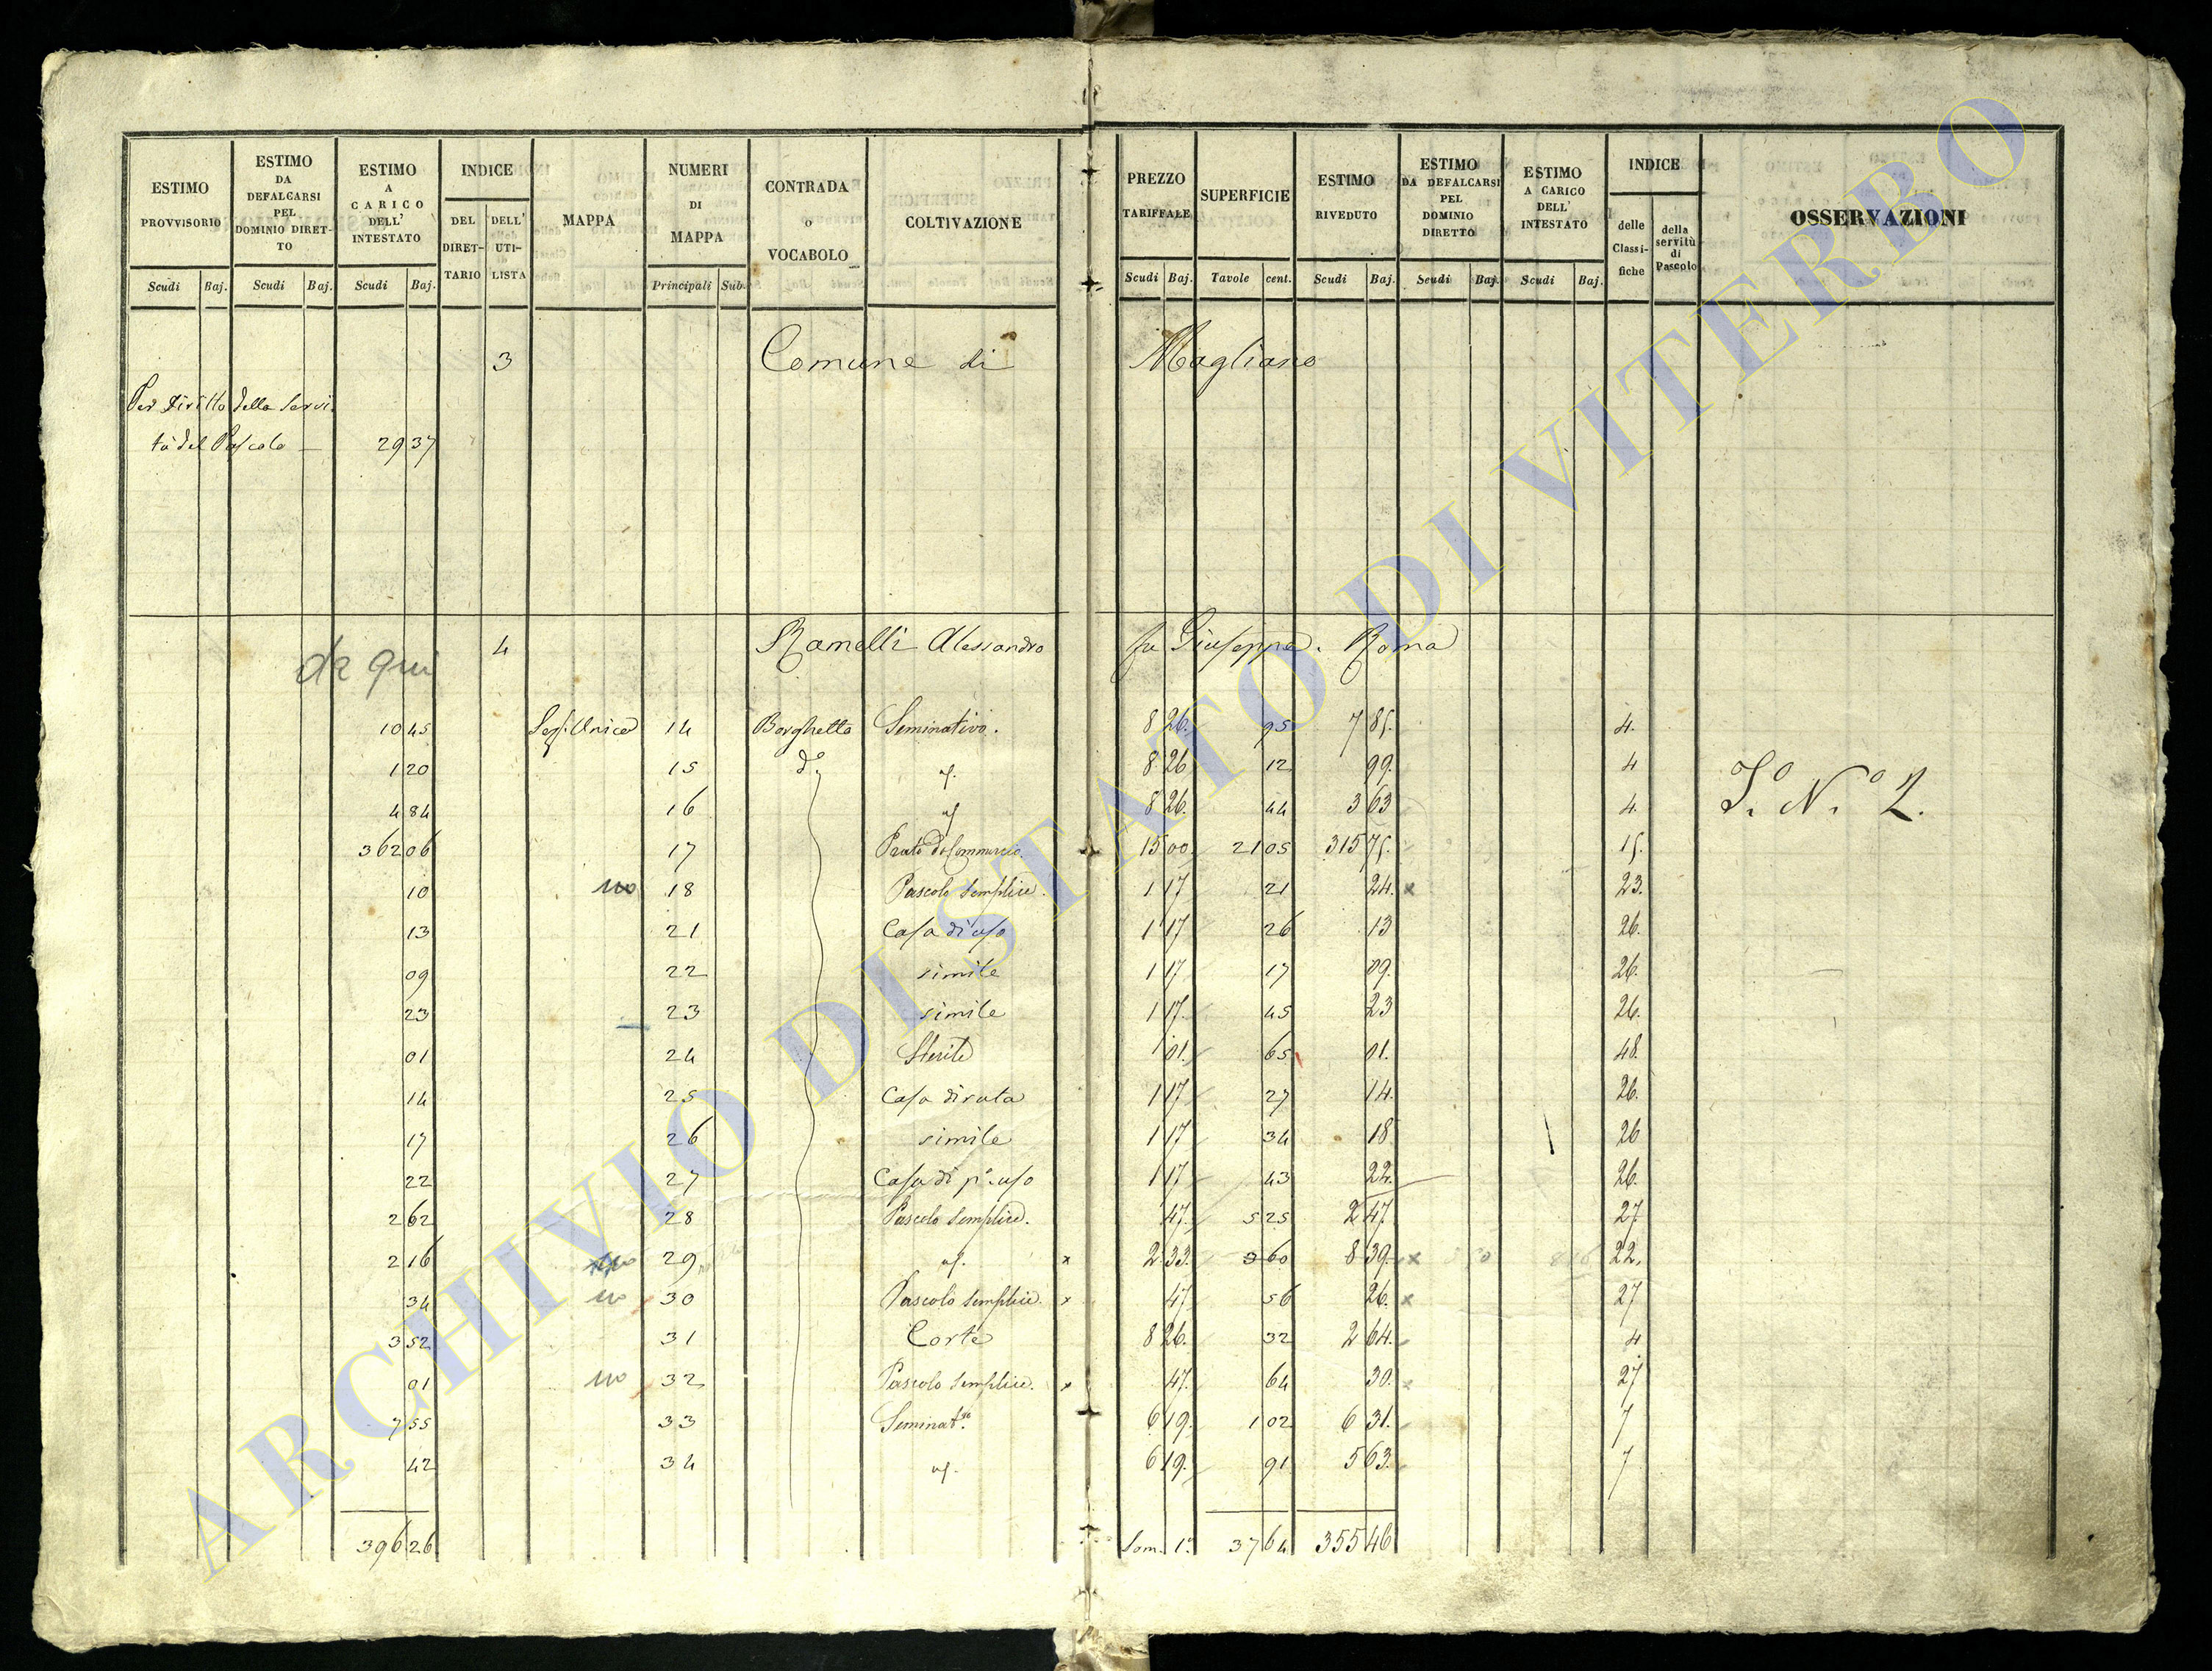 ESTIMO PROVVISORIO
ESTIMO DA DEFALCARSI PEL DOMINIO DIRETTO
ESTIMO A CARICO DELL' INTESTATO
INDICE
DEL DIRETTARIO
DELL' UTILISTA
MAPPA
NUMERI DI MAPPA
CONTRADA o VOCABOLO
COLTIVAZIONE
PREZZO TARIFFALE
SUPERFICIE
ESTIMO RIVEDUTO
ESTIMO DA DEFALCARSI PEL DOMINIO DIRETTO
ESTIMO A CARICO DELL' INTESTATO
INDICE
delle Classifiche
della servitù di Pascolo
OSSERVAZIONI
Scudi Baj. Scudi Baj. Scudi Baj. Principali Sub. Scudi Baj. Tavole cent. Scudi Baj. Scudi Baj. Scudi Baj.
3 Comune di Magliano
Per diritto della Servi
tù del Pascolo — 29 37
4 Ramelli Alessandro fu Giuseppe. Roma
da qui
10 45 Sez. Unica 14 Borghetto Seminativo. 8 26. 95 7 85. 4.
1 20 15 do id. 8 26 12 99. 4
4 84 16 id 8 26. 44 3 63 4.
362 06 17 Prato da Commercio. 15 00. 21 05 315 75. 15.
10 no 18 Pascolo semplice. 1 17 21 24. x 23.
13 21 Casa di uso 1 17 26 13 26.
09 22 simile 1 17. 17 09. 26.
23 23 simile 1 17. 45 23 26.
01 24 Sterile 01. 65 01. 48.
14 25 Casa diruta 1 17 27 14. 26.
17 26 simile 1 17 34 18 26
22 27 Casa di po. uso 1 17 43 22. 26.
2 62 28 Pascolo semplice. 47. 5 25 2 47. 27
2 16 no 29 id. x 2 33. 3 60 8 39. x 22.
34 no 30 Pascolo semplice. x 47. 56 26. x 27
3 52 31 Corte 8 26. 32 2 64. 4
01 no 32 Pascolo semplice. x 47. 64 30. x 27
7 55 33 Seminat.vo 6 19. 1 02 6 31. 7
42 34 id. 6 19. 91 5 63. 7
S.o N.o 2.
396 26 Som. 1a 37 64 355 46
ARCHIVIO DI STATO DI VITERBO